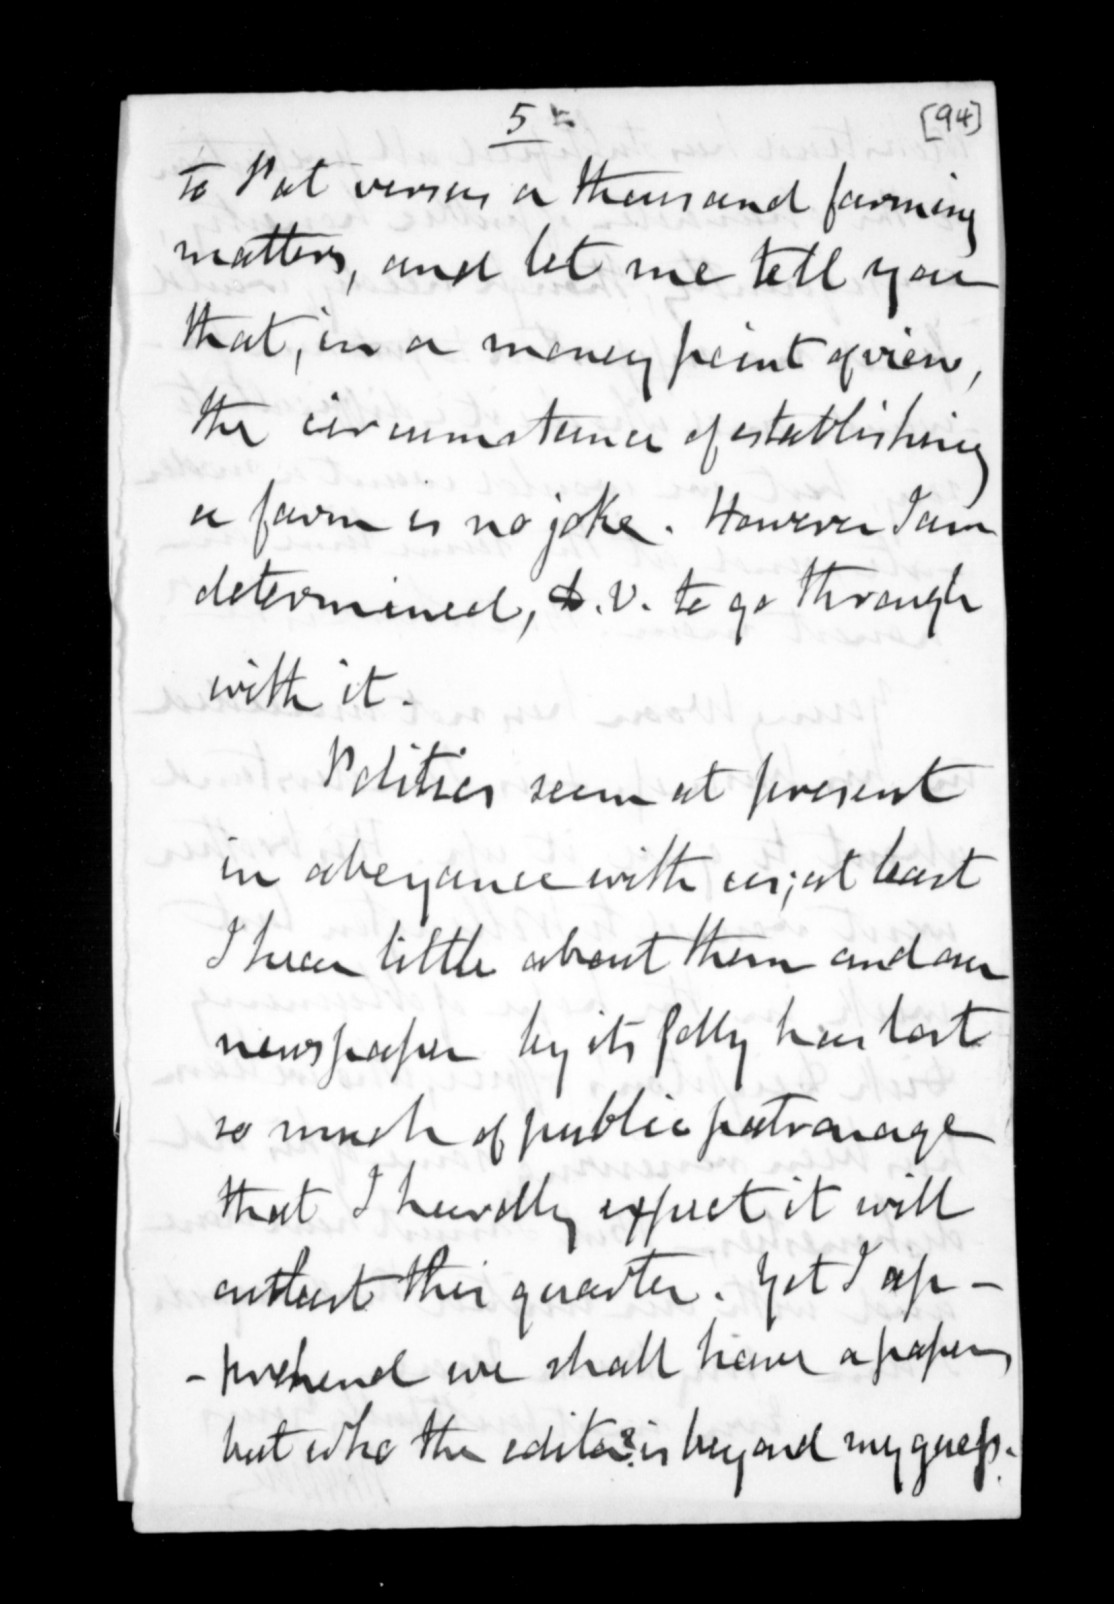 5
[94]
to Pat versus a thousand farming
matters, and let me tell you
that, in a money point of view,
the circumstance of establishing
a farm is no joke. However I am
determined, D.V. to go through
with it.
Politics seem at present
in abeyance with us; at least
I hear little about them and our
newspaper by its folly has lost
so much of public patronage
that I hardly expect it will
outlast this quarter. Yet I ap-
-prehend we shall have a paper,
but who the editor? is beyond my guess.